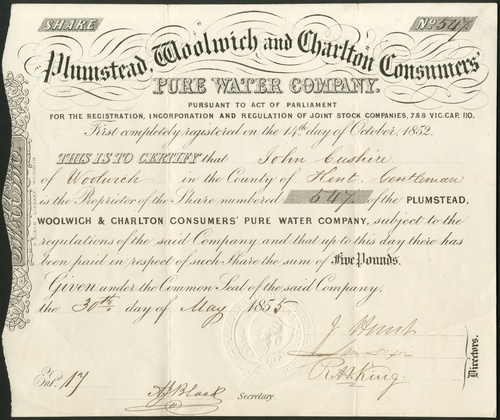 SHARE
No. 547.
Plumstead, Woolwich and Charlton Consumers'
PURE WATER COMPANY.
PURSUANT TO ACT OF PARLIAMENT
FOR THE REGISTRATION, INCORPORATION AND REGULATION OF JOINT STOCK COMPANIES, 7 & 8 VIC. CAP. 110.
First completely registered on the 14th day of October, 1852.
THIS IS TO CERTIFY that John Cushire
of Woolwich in the County of Kent Gentleman
is the Proprietor of the Share numbered 547. of the PLUMSTEAD,
WOOLWICH & CHARLTON CONSUMERS' PURE WATER COMPANY, subject to the
regulations of the said Company, and that up to this day there has
been paid in respect of such Share the sum of Five Pounds.
Given under the Common Seal of the said Company,
the 30th day of May 1855
J Hunt
R A King.
Directors.
17
Black
Secretary.